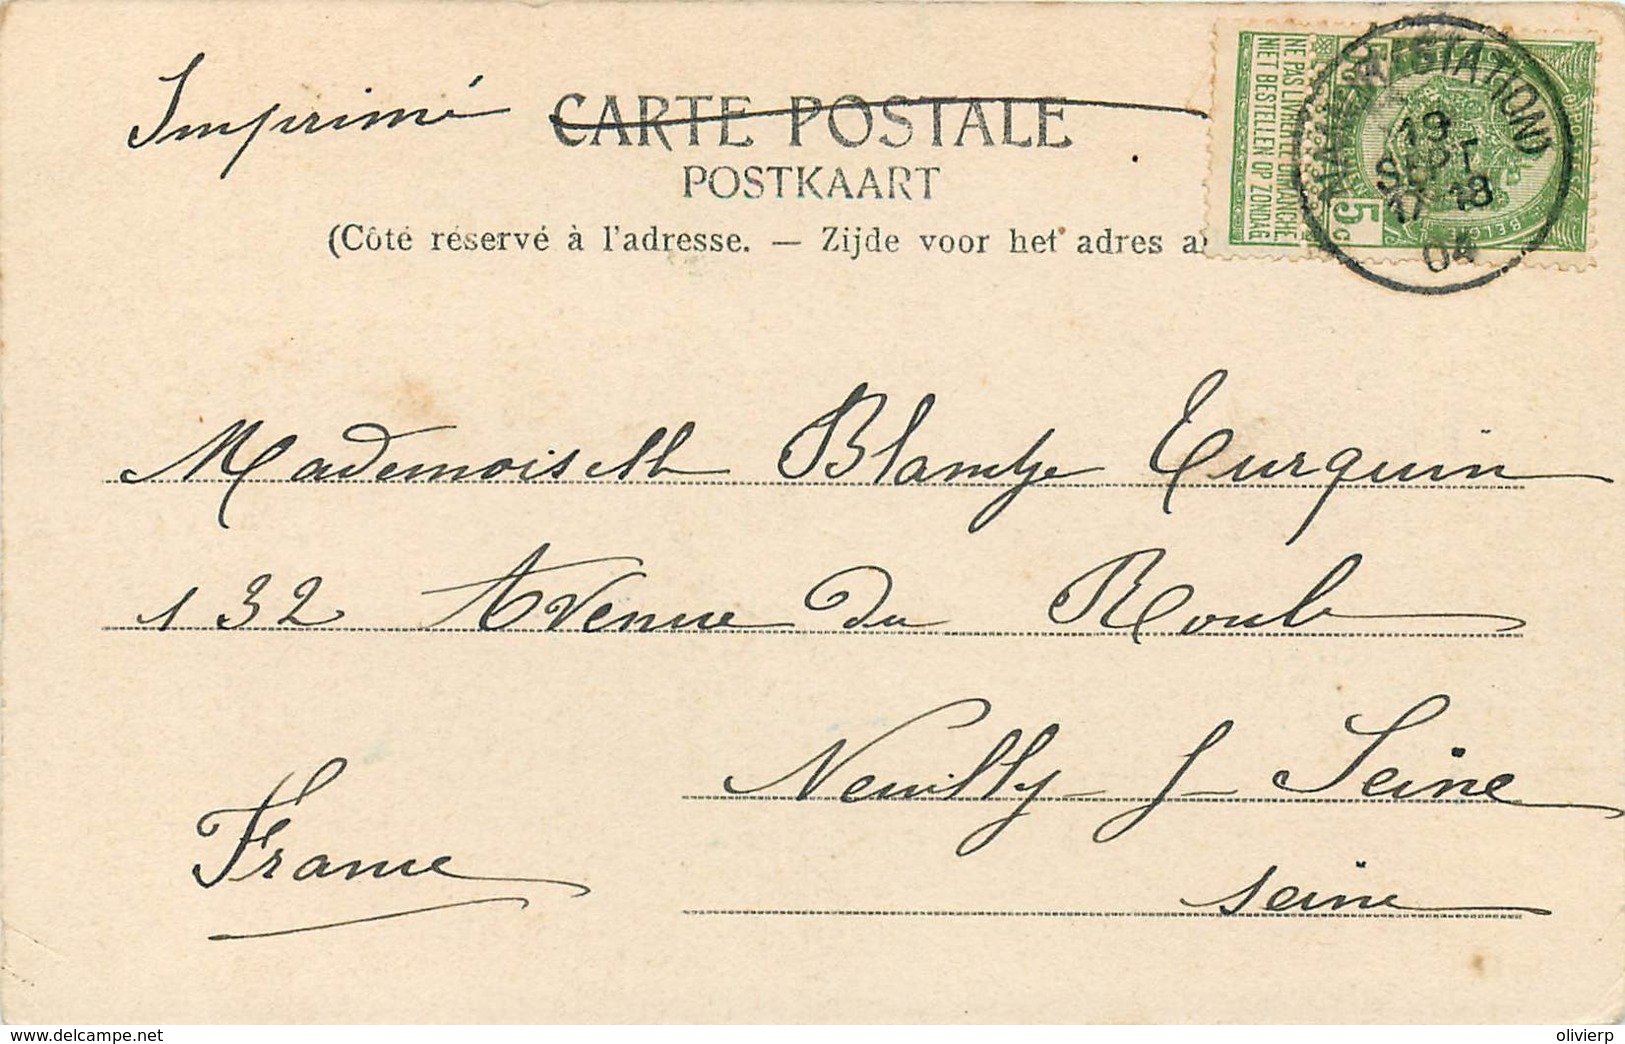 Imprimé
CARTE POSTALE
POSTKAART
(Côté réservé à l'adresse. — Zijde voor het adres a
NE PAS LIVRER LE DIMANCHE
NIET BESTELLEN OP ZONDAG
5 c
BELGE
NAMUR (STATION)
19
SEPT
17-18
04
Mademoiselle Blanche Turquin
132 Avenue du Roule
Neuilly-s-Seine
France
Seine
www.delcampe.net
olivierp